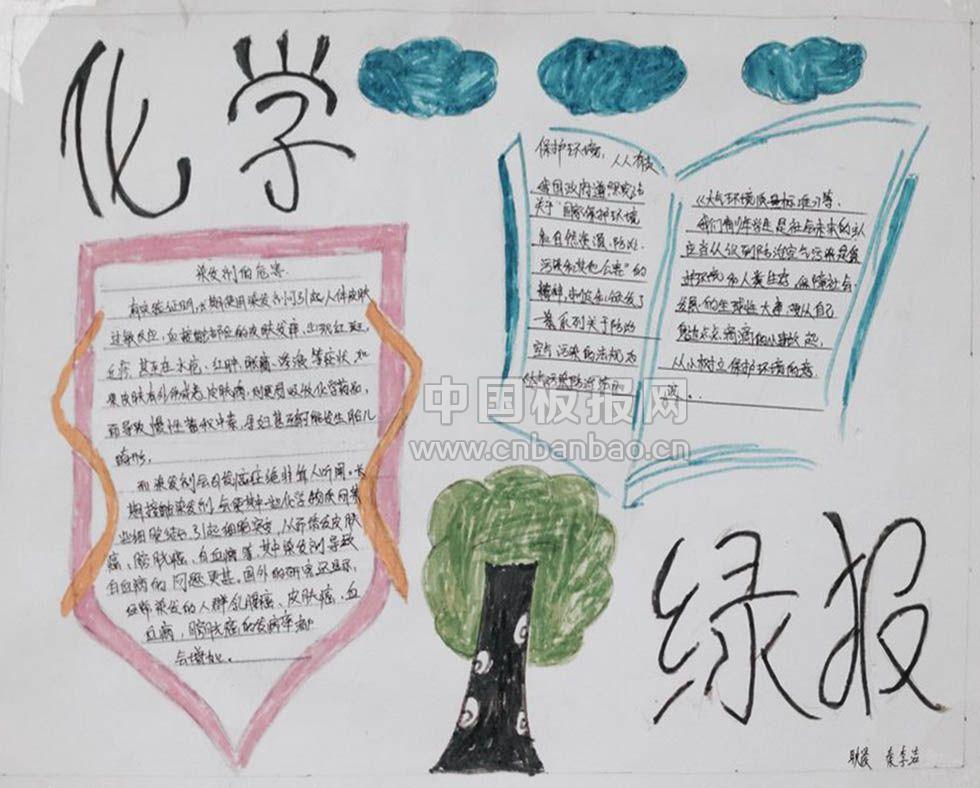 化学
染发剂的危害
有实验证明,长期使用染发剂可引起人体皮肤
过敏反应,在接触部位的皮肤发痒、出现红斑、
丘疹 甚至水疱、红肿、
果皮肤有外伤或患皮肤病,
而导致慢性蓄积中毒,孕妇甚至可能发生胎儿
畸形,
而染发剂会引发癌症绝非耸人听闻。长
期接触染发剂,会使其中一些化学物质同某
些细胞结合,引起细胞突变,从而诱发皮肤
癌、膀胱癌、白血病等,其中染发剂导致
白血病的问题更甚。国外的研究还显示,
经常染发的人群乳腺癌、皮肤癌、白
血病,膀胱癌的发病率都
会增加。
保护环境,人人有责
我国政府遵照宪法
关于“国家保护环境
和自然资源,防治
污染和其他公害”的
精神,
一系列关于防治
空气污染的法规如
《大气环境质量标准》等,
我们青少年学生是社会未来的主人
应当认识到防治空气污染是保
护环境和人类生存,保障社会
发展的
身边点点滴滴的小事做起,
从小树立保护环境的意
识。
中国板报网
www.cnbanbao.cn
绿报